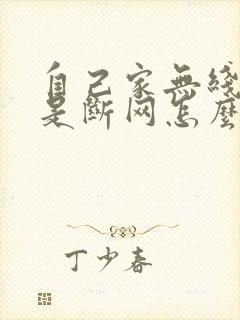 自己家無綫
是斷网怎麼
丁少春